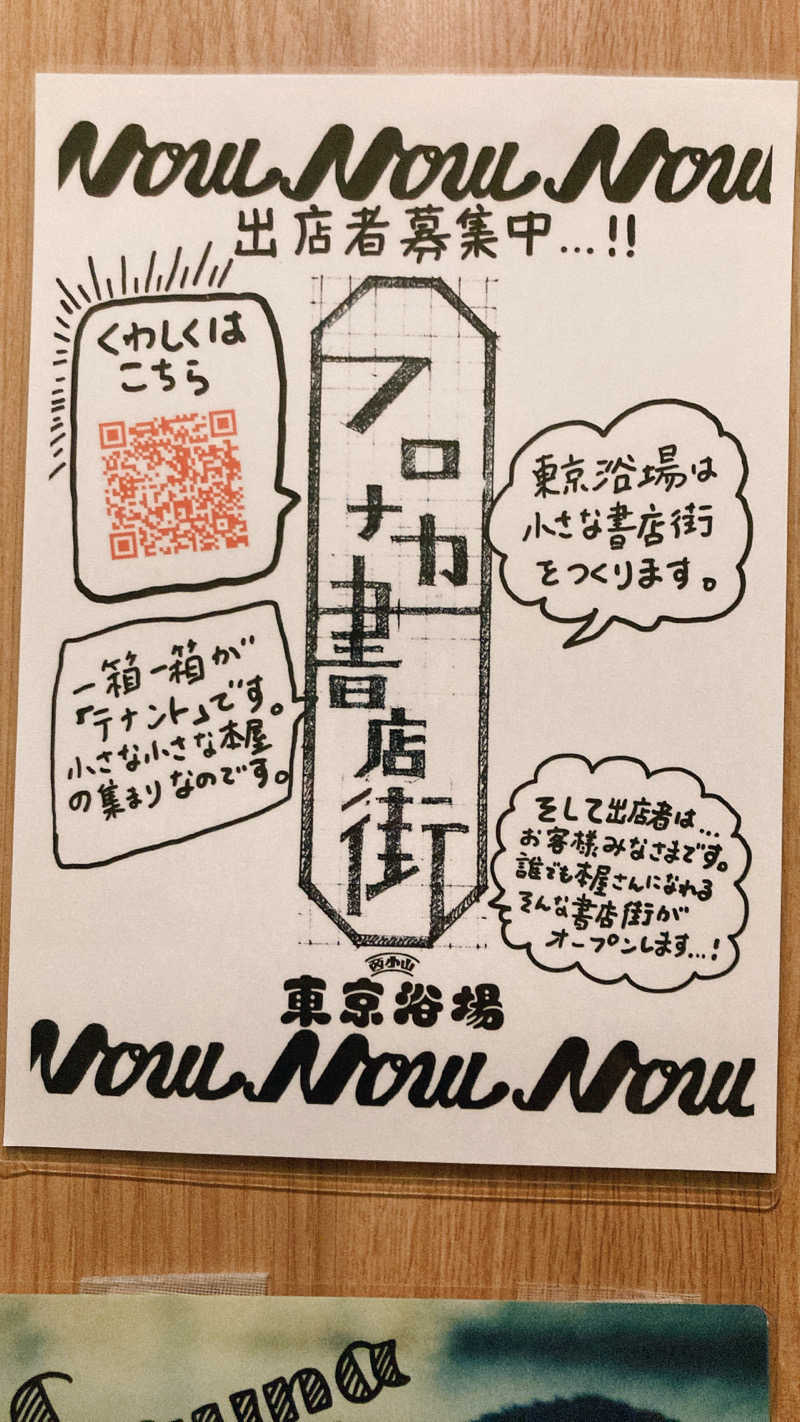 Now Now Now
出店者募集中...!!
くわしくは
こちら
フロ
ナカ
書
店
街
東京浴場は
小さな書店街
をつくります。
一箱一箱が
「テナント」です。
小さな小さな本屋
の集まりなのです。
そして出店者は...
お客様みなさまです。
誰でも本屋さんになれる
そんな書店街が
オープンします...!
西小山
東京浴場
Now Now Now